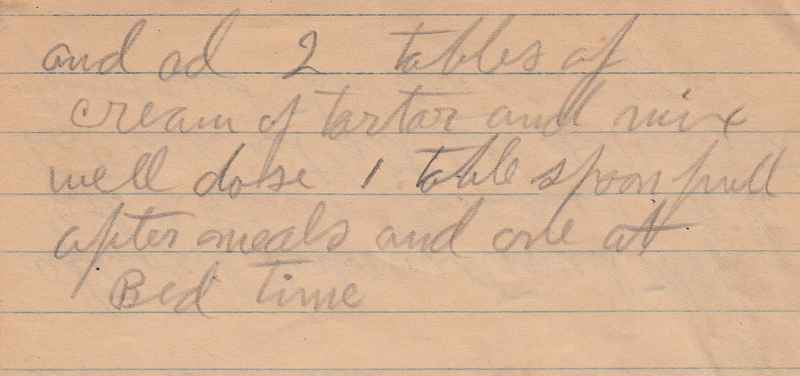 and ad 2 tables of
cream of tartar and mix
well dose 1 table spoon full
after meals and one at
Bed time